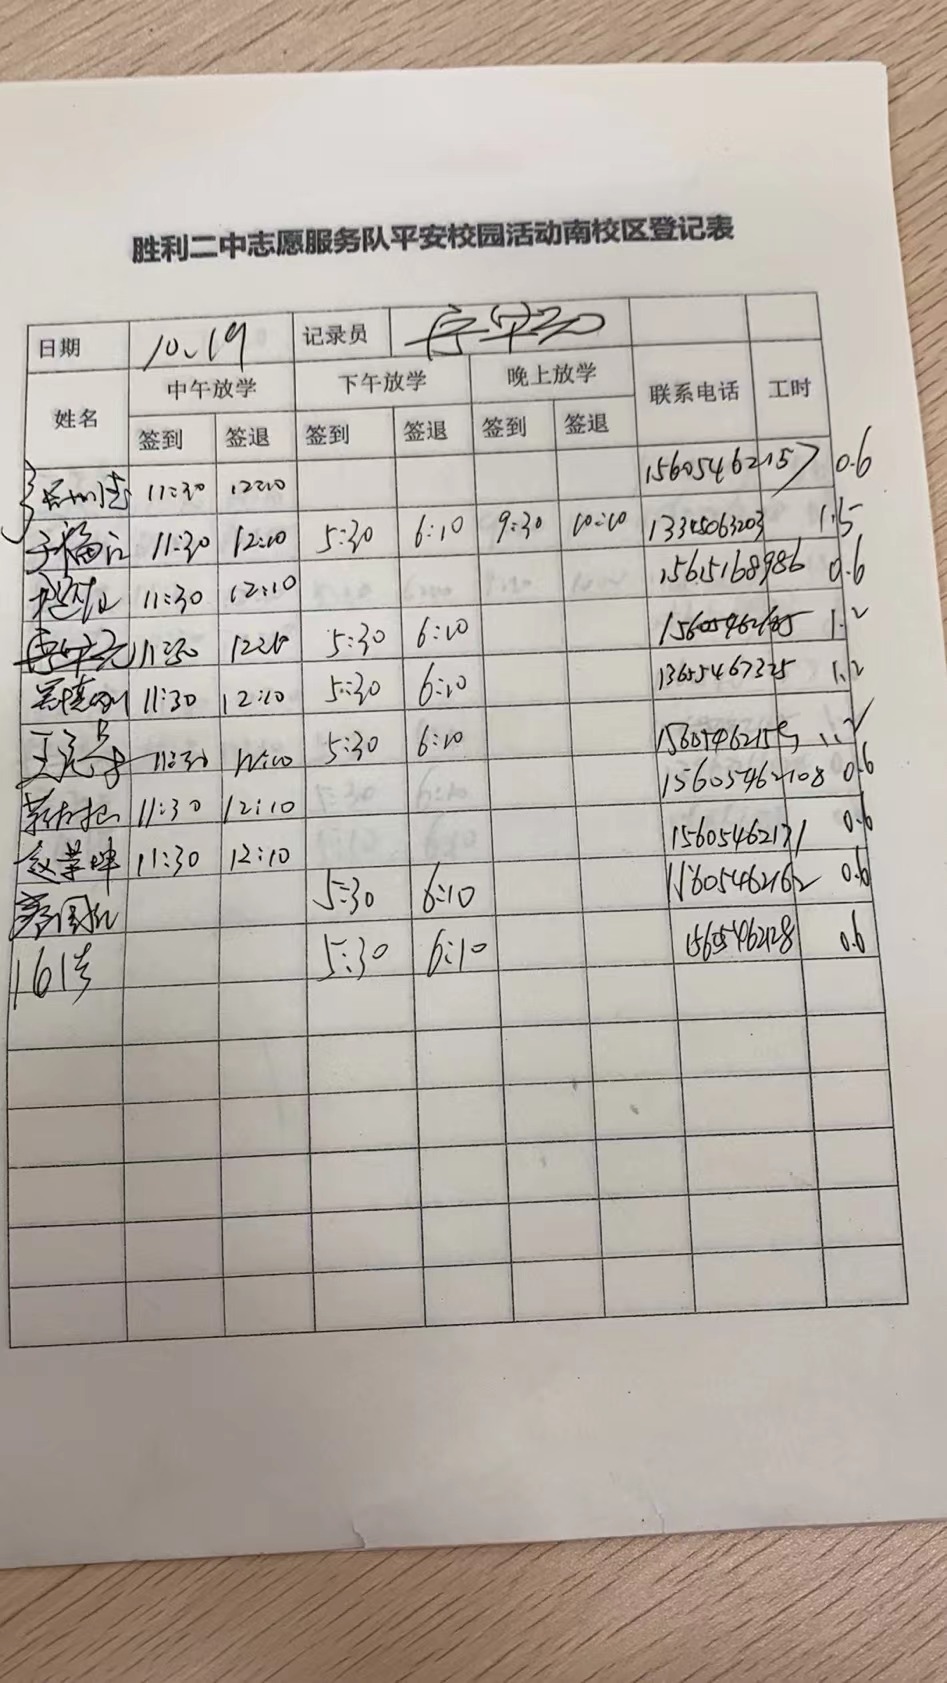 胜利二中志愿服务队平安校园活动南校区登记表
日期 10、19 记录员
姓名 中午放学 下午放学 晚上放学 联系电话 工时
签到 签退 签到 签退 签到 签退
11:30 12:10 15605462157 0.6
于福江 11:30 12:10 5:30 6:10 9:30 10:10 13345063203 1.5
11:30 12:10 15615168986 0.6
11:30 12:10 5:30 6:10 1.2
11:30 12:10 5:30 6:10 13655467325 1.2
11:30 5:30 6:10 1.2
11:30 12:10 15605462108 0.6
赵荣坤 11:30 12:10 15605462131 0.6
5:30 6:10 15605462162 0.6
5:30 6:10 15605462128 0.6